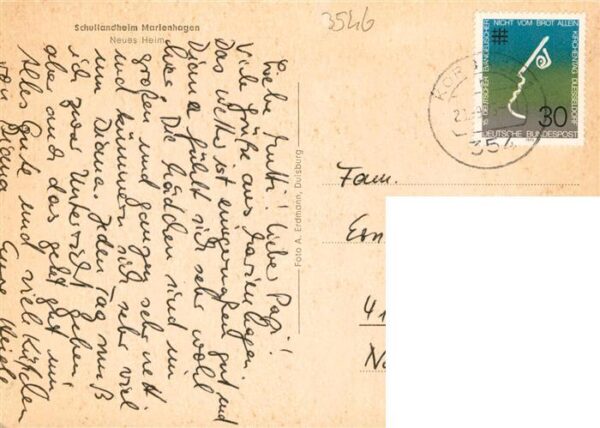 Schullandheim Marienhagen
Neues Heim
3546
Liebe Mutti! Lieber Papi!
Viele Grüße aus Marienhagen.
Das Wetter ist einigermaßen gut und
Diana fühlt sich sehr wohl
hier. Die Mädchen sind im
großen und ganzen sehr nett
und kümmern sich sehr viel
um Diana. Jeden Tag muß
ich zwar Unterricht geben
aber auch das geht gut.
Alles Gute und viele Küßchen
von Diana
Foto A. Erdmann, Duisburg
15. DEUTSCHER EVANGELISCHER KIRCHENTAG DUESSELDORF
NICHT VOM BROT ALLEIN
30
DEUTSCHE BUNDESPOST
KORB
354
Fam.
Ern
41